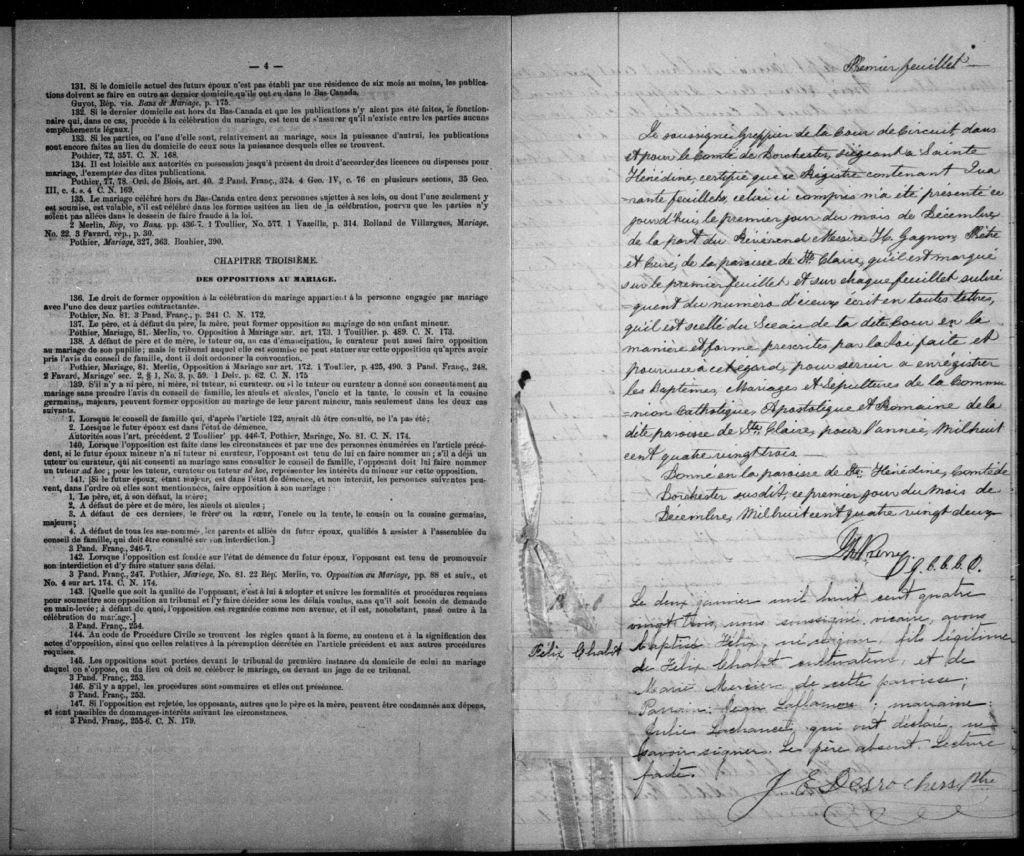 — 4 —
131. Si le domicile actuel des futurs époux n'est pas établi par une résidence de six mois au moins, les publica-
tions doivent se faire en outre au dernier domicile qu'ils ont eu dans le Bas-Canada.
Guyot, Rép. vis. Bans de Mariage, p. 175.
132. Si le dernier domicile est hors du Bas-Canada et que les publications n'y aient pas été faites, le fonction-
naire qui, dans ce cas, procède à la célébration du mariage, est tenu de s'assurer qu'il n'existe entre les parties aucuns
empêchements légaux.]
133. Si les parties, ou l'une d'elle sont, relativement au mariage, sous la puissance d'autrui, les publications
sont encore faites au lieu du domicile de ceux sous la puissance desquels elles se trouvent.
Pothier, 72, 357. C. N. 168.
134. Il est loisible aux autorités en possession jusqu'à présent du droit d'accorder des licences ou dispenses pour
mariage, d'exempter des dites publications.
Pothier, 77, 78. Ord. de Blois, art. 40. 2 Pand. Franç., 324. 4 Geo. IV, c. 76 en plusieurs sections, 35 Geo.
III, c. 4. s. 4 C. N. 169.
135. Le mariage célébré hors du Bas-Canada entre deux personnes sujettes à ses lois, ou dont l'une seulement y
est soumise, est valable, s'il est célébré dans les formes usitées au lieu de la célébration, pourvu que les parties n'y
soient pas allées dans le dessein de faire fraude à la loi.
2 Merlin, Rép, vo Bans. pp. 436-7. 1 Toullier, No. 577. 1 Vazeille, p. 314. Rolland de Villargues, Mariage.
No. 22. 3 Favard, rép., p. 30.
Pothier, Mariage, 327, 363. Bouhier, 390.
CHAPITRE TROISIÈME.
DES OPPOSITIONS AU MARIAGE.
136. Le droit de former opposition à la célébration du mariage appartient à la personne engagée par mariage
avec l'une des deux parties contractantes.
Pothier, No. 81. 3 Pand. Franç., p. 241 C. N. 172.
137. Le père, et à défaut du père, la mère, peut former opposition au mariage de son enfant mineur.
Pothier, Mariage, 81. Merlin, vo. Opposition à Mariage sur. art. 173. 1 Toullier. p. 489. C. N. 173.
138. A défaut de père et de mère, le tuteur ou, au cas d'émancipation, le curateur peut aussi faire opposition
au mariage de son pupille; mais le tribunal auquel elle est soumise ne peut statuer sur cette opposition qu'après avoir
pris l'avis du conseil de famille, dont il doit ordonner la convocation.
Pothier, Mariage, 81. Merlin, Opposition à Mariage sur art. 172. 1 Toullier, p. 425, 490. 3 Pand. Franç., 248.
2 Favard, Mariage sec. 2, § 1, No. 3, p. 59. 1 Delv. p. 62. C. N. 175
139. S'il n'y a ni père, ni mère, ni tuteur, ni curateur, ou si le tuteur ou curateur a donné son consentement au
mariage sans prendre l'avis du conseil de famille, les aïeuls et aïeules, l'oncle et la tante, le cousin et la cousine
germains, majeurs, peuvent former opposition au mariage de leur parent mineur, mais seulement dans les deux cas
suivants.
1. Lorsque le conseil de famille qui, d'après l'article 122, aurait dû être consulté, ne l'a pas été;
2. Lorsque le futur époux est dans l'état de démence.
Autorités sous l'art. précédent. 2 Toullier pp. 446-7, Pothier, Mariage, No. 81. C. N. 174.
140. Lorsque l'opposition est faite dans les circonstances et par une des personnes énumérées en l'article précé-
dent, si le futur époux mineur n'a ni tuteur ni curateur, l'opposant est tenu de lui en faire nommer un; s'il a déjà un
tuteur ou curateur, qui ait consenti au mariage sans consulter le conseil de famille, l'opposant doit lui faire nommer
un tuteur ad hoc; pour les tuteur, curateur ou tuteur ad hoc, représenter les intérêts du mineur sur cette opposition.
141. [Si le futur époux, étant majeur, est dans l'état de démence, et non interdit, les personnes suivantes peu-
vent, dans l'ordre où elles sont mentionnées, faire opposition à son mariage:
1. Le père, et, à son défaut, la mère;
2. A défaut de père et de mère, les aïeuls et aïeules;
3. A défaut de ces derniers, le frère ou la sœur, l'oncle ou la tente, le cousin ou la cousine germains,
majeurs;
4. A défaut de tous les sus-nommés les parents et alliés du futur époux, qualifiés à assister à l'assemblée du
conseil de famille, qui doit être consulté sur son interdiction.]
3 Pand. Franç., 246-7.
142. Lorsque l'opposition est fondée sur l'état de démence du futur époux, l'opposant est tenu de promouvoir
son interdiction et d'y faire statuer sans délai.
3 Pand. Franç., 247. Pothier, Mariage, No. 81. 22 Rép. Merlin, vo. Opposition au Mariage, pp. 88 et suiv., et
No. 4 sur art. 174. C. N. 174.
143. [Quelque que soit la qualité de l'opposant, c'est à lui à adopter et suivre les formalités et procédures requises
pour soumettre son opposition au tribunal et l'y faire décider sous les délais voulus, sans qu'il soit besoin de demande
en main-levée; à défaut de quoi, l'opposition est regardée comme non avenue, et il est, nonobstant, passé outre à la
célébration du mariage.]
3 Pand. Franç., 254.
144. Au code de Procédure Civile se trouvent les règles quant à la forme, au contenu et à la signification des
actes d'opposition, ainsi que celles relatives à la péremption décrétée en l'article précédent et aux autres procédures
requises.
145. Les oppositions sont portées devant le tribunal de première instance du domicile de celui au mariage
duquel on s'oppose, ou du lieu où doit se célébrer le mariage, ou devant un juge de ce tribunal.
3 Pand. Franç., 253.
146. S'il y a appel, les procédures sont sommaires et elles ont préséance.
3 Pand. Franç., 253.
147. Si l'opposition est rejetée, les opposants, autres que le père et la mère, peuvent être condamnés aux dépens,
et sont passibles de dommages-intérêts suivant les circonstances.
3 Pand. Franç., 255-6. C. N. 179.
Premier feuillet
Le soussigné, Greffier de la Cour de Circuit dans
et pour le Comté de Dorchester, siégeant à Sainte
Hénédine, certifie que ce Registre contenant Qua
rante feuillets, celui ci compris m'a été présenté ce
jourd'hui, le premier jour du mois de Décembre,
de la part du Révérend Messire H. Gagnon, Prêtre
et Curé, de la paroisse de Ste Claire, qu'il est marqué
sur le premier feuillet et sur chaque feuillet subsé
quent du numéro d'iceux écrit en toutes lettres,
qu'il est scellé du Sceau de la dite Cour en la
manière et forme prescrites par la Loi faite et
pourvue à cet égard, pour servir à enregistrer
les Baptêmes, Mariages et Sépultures de la Commu
-nion Catholique, Apostolique et Romaine de la
dite paroisse de Ste Claire, pour l'année, Mil huit
cent quatre vingt trois —
Donné en la paroisse de Ste Hénédine, Comté de
Dorchester susdit, ce premier jour du Mois de
Décembre, Mil huit cent quatre vingt deux
Félix Chabot
Le deux janvier mil huit cent quatre
vingt trois, nous soussigné, vicaire, avons
baptisé Félix, né ce jour, fils légitime
de Felix Chabot cultivateur, et de
Marie Mercier, de cette paroisse;
Parrain: Jean Laflamme; marraine:
Julie Lachance, qui ont déclaré ne
savoir signer. Le père absent. Lecture
faite.
J. E. Desrochers Ptre